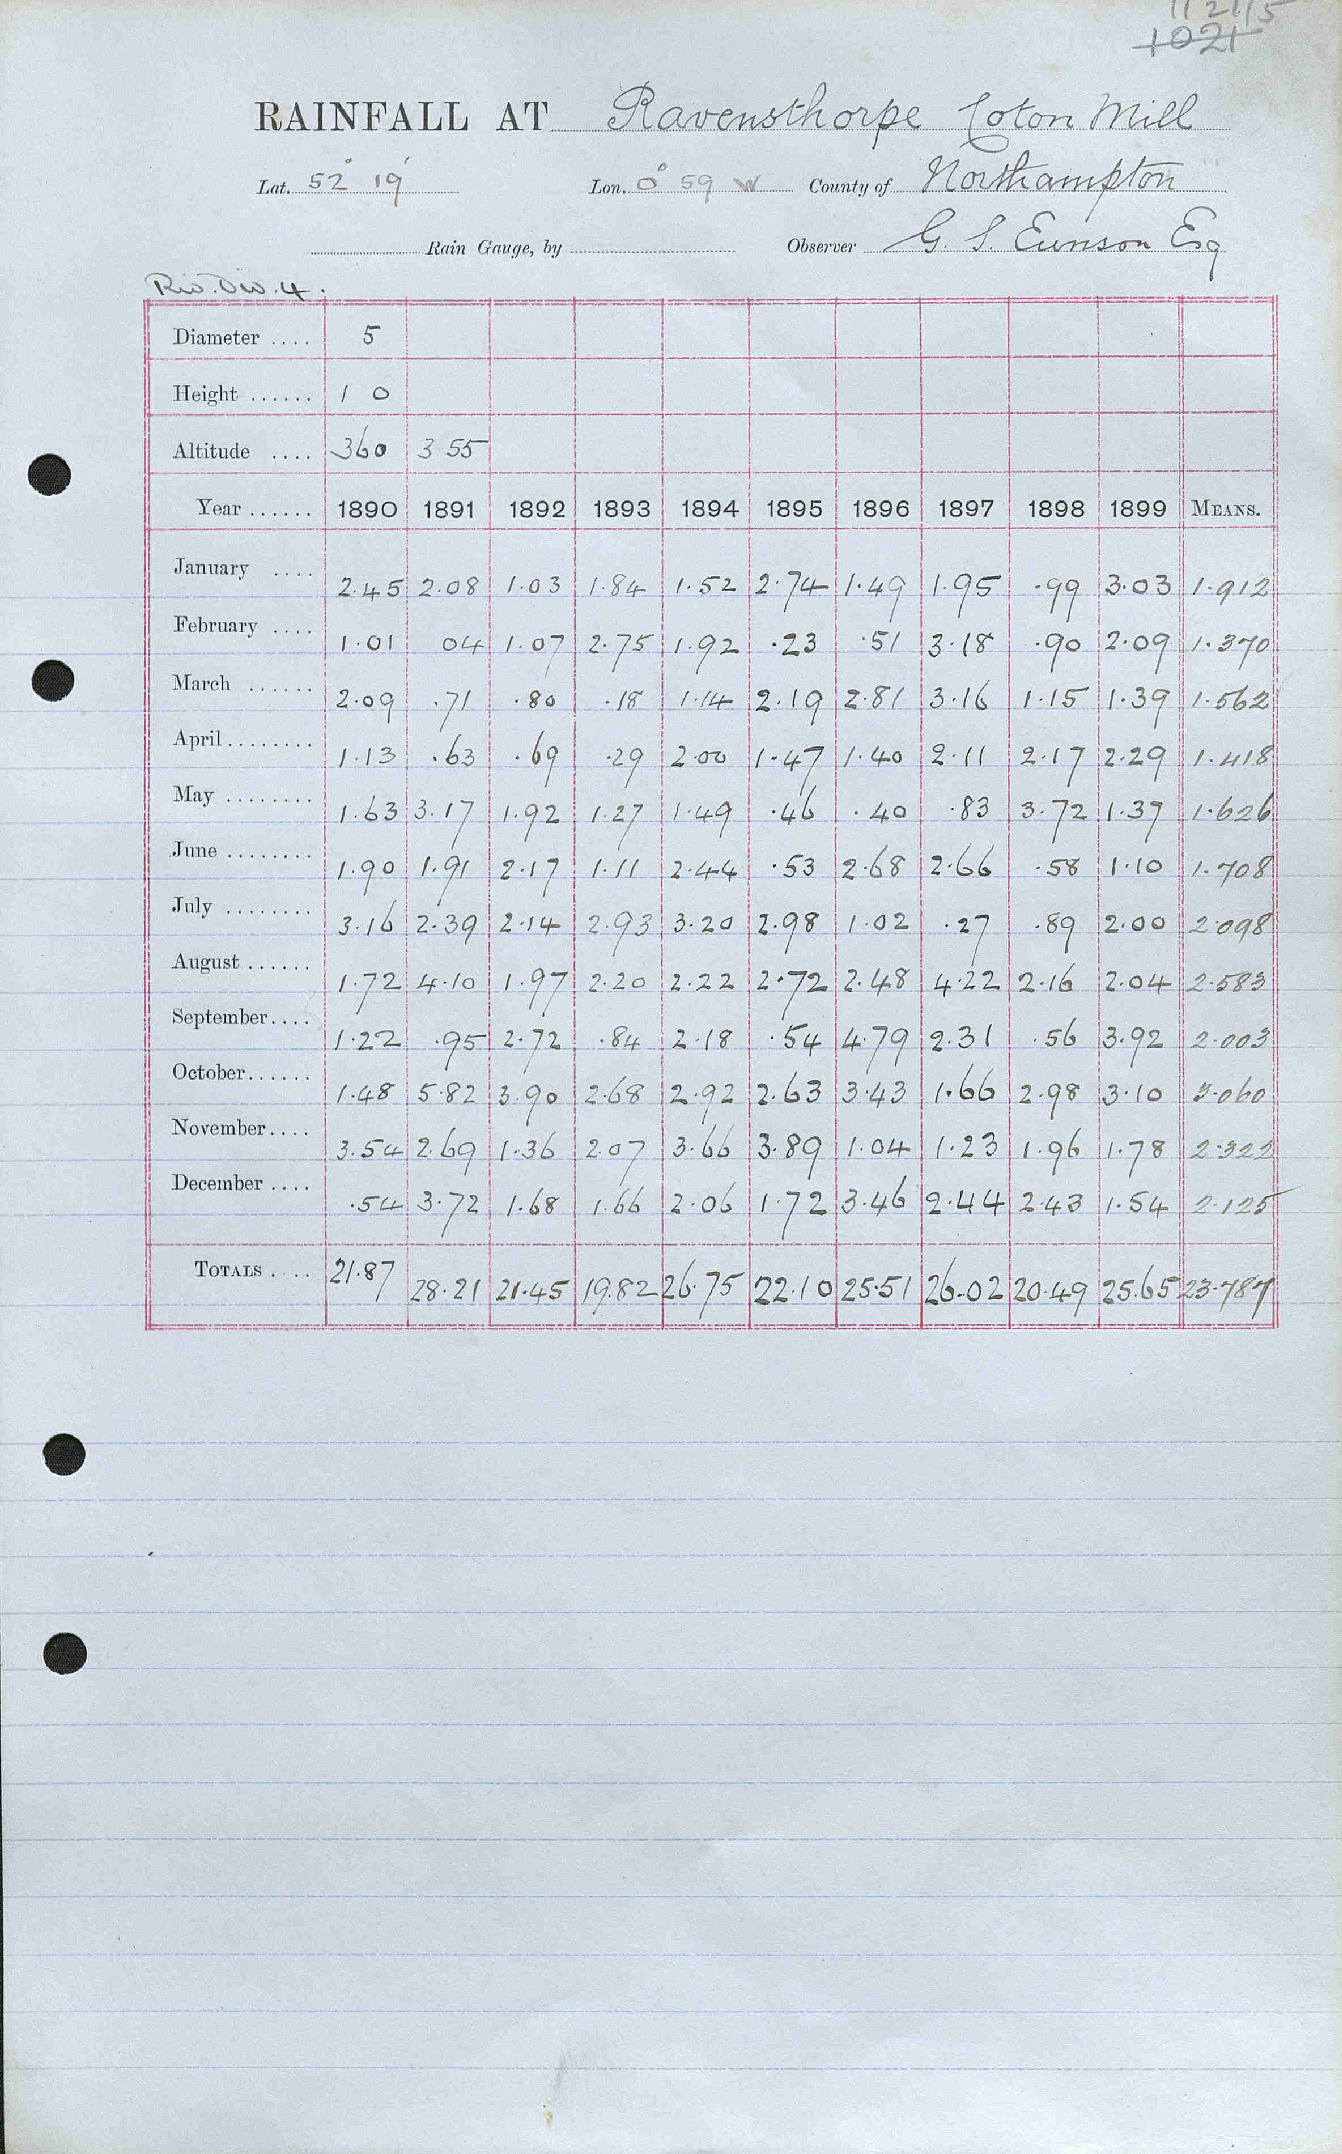 11 21/5
1021
RAINFALL AT Ravensthorpe Coton Mill
Lat. 52° 19' Lon. 0° 59 W County of Northampton
Rain Gauge, by Observer G. S. Eunson Esq
Riv. Div. 4.
Diameter .... 5
Height ...... 1 0
Altitude .... 360 355
Year ...... 1890 1891 1892 1893 1894 1895 1896 1897 1898 1899 MEANS.
January .... 2.45 2.08 1.03 1.84 1.52 2.74 1.49 1.95 .99 3.03 1.912
February .... 1.01 04 1.07 2.75 1.92 .23 .51 3.18 .90 2.09 1.370
March ...... 2.09 .71 .80 .18 1.14 2.19 2.81 3.16 1.15 1.39 1.562
April ........ 1.13 .63 .69 .29 2.00 1.47 1.40 2.11 2.17 2.29 1.418
May ........ 1.63 3.17 1.92 1.27 1.49 .46 .40 .83 3.72 1.37 1.626
June ........ 1.90 1.91 2.17 1.11 2.44 .53 2.68 2.66 .58 1.10 1.708
July ........ 3.16 2.39 2.14 2.93 3.20 2.98 1.02 .27 .89 2.00 2.098
August ...... 1.72 4.10 1.97 2.20 2.22 2.72 2.48 4.22 2.16 2.04 2.583
September .... 1.22 .95 2.72 .84 2.18 .54 4.79 2.31 .56 3.92 2.003
October ...... 1.48 5.82 3.90 2.68 2.92 2.63 3.43 1.66 2.98 3.10 3.060
November .... 3.54 2.69 1.36 2.07 3.66 3.89 1.04 1.23 1.96 1.78 2.322
December .... .54 3.72 1.68 1.66 2.06 1.72 3.46 2.44 2.43 1.54 2.125
TOTALS .... 21.87 28.21 21.45 19.82 26.75 22.10 25.51 26.02 20.49 25.65 23.787